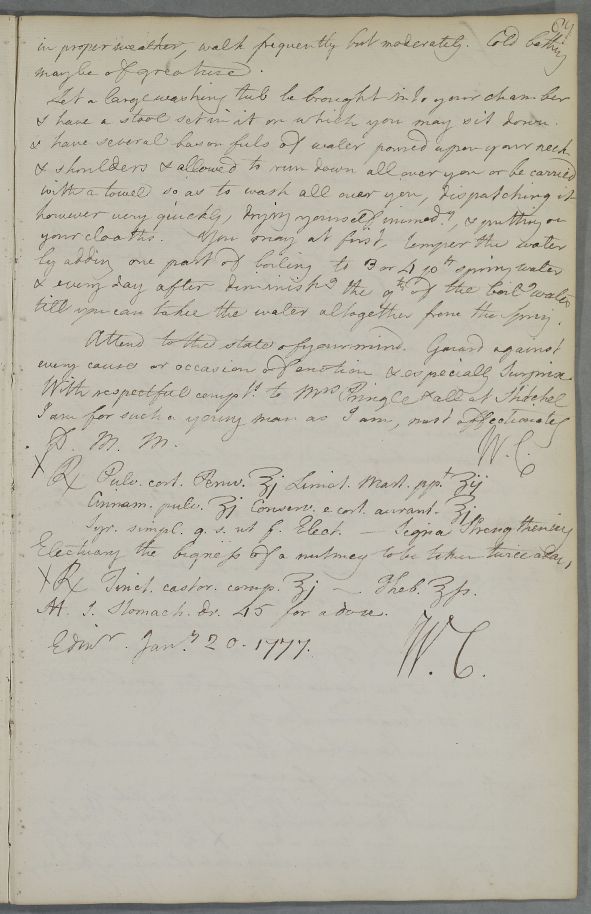 in proper weather, walk frequently but moderately. Cold bathing
may be of great use.
Let a large washing tub be brought into your chamber
& have a stool set in it on which you may sit down
& have several bason fuls of water poured upon your neck
& shoulders & allowed to run down all over you or be carried
with a towel so as to wash all over you, dispatching it
however very quickly, drying yourself immed.y, & putting on
your cloaths. You may at first, temper the water
by adding one part of boiling to 3 or 4 pts spring water
& every day after diminish.g the q.ty of the boil.g water
till you can take the water altogether from the spring.
Attend to the state of your mind. Guard against
every cause or occasion of emotion & especially Surprise
With respectful compts to Mrs Pringle & all at Stitchel
I am for such a young man as I am, most affectionately
M. M. W. C.
X ℞ Pulv. cort. Peruv. ʒj Limat. Mart. ppt. ʒij
Cinnam. pulv. ʒj Conserv. e cort. aurant. ʒj
Syr. simpl. q. s. ut f. Elect. — Signa Strengthening
Electuary the bigness of a nutmeg to be taken twice a day,
X ℞ Tinct. castor. comp. ʒj — Theb. ʒſs.
M. S. Stomach. dr. 45 for a dose.
Edinr. Jan.y 20. 1777. W. C.